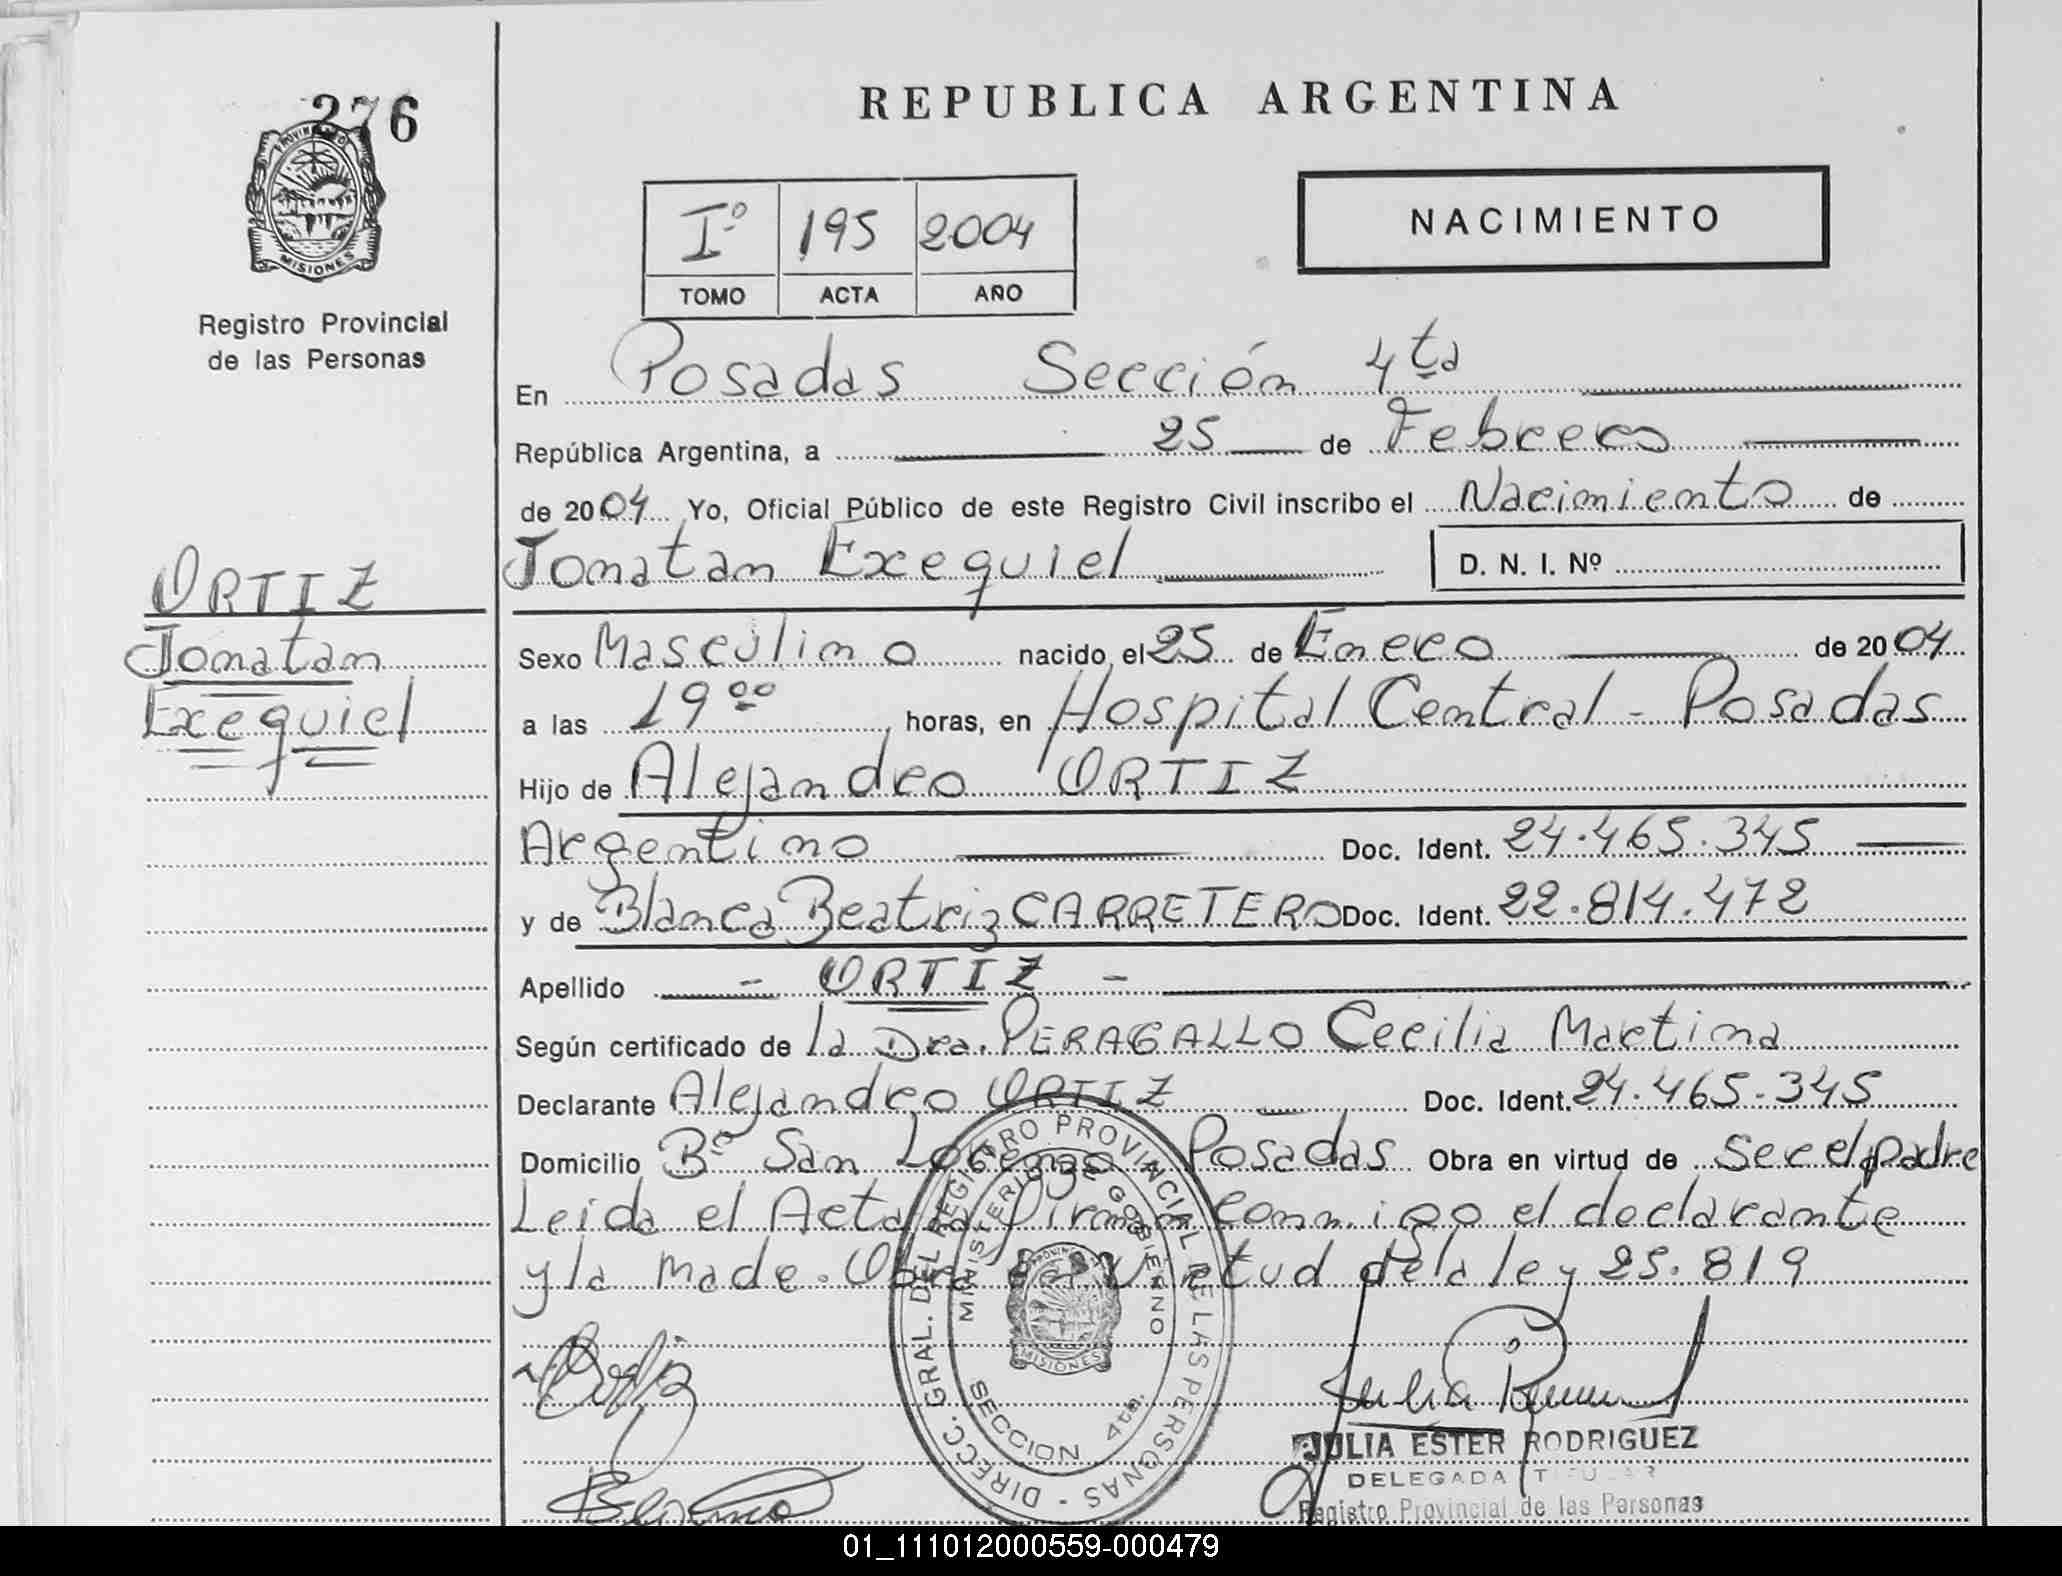 276
REPUBLICA ARGENTINA
PROVINCIA
MISIONES
Registro Provincial
de las Personas
Iº 195 2004
TOMO ACTA AÑO
NACIMIENTO
En Posadas Sección 4ta
República Argentina, a 25 de Febrero
de 2004 Yo, Oficial Público de este Registro Civil inscribo el Nacimiento de
Jonatan Exequiel D. N. I. Nº
ORTIZ
Jonatan
Exequiel
Sexo Masculino nacido el 25 de Enero de 2004
a las 19 00 horas, en Hospital Central - Posadas
Hijo de Alejandro ORTIZ
Argentino Doc. Ident. 24.465.345
y de Blanca Beatriz CARRETERO Doc. Ident. 22.814.472
Apellido - ORTIZ -
Según certificado de la Dra. PERAGALLO Cecilia Martina
Declarante Alejandro ORTIZ Doc. Ident. 24.465.345
Domicilio Bº San Lorenzo Posadas Obra en virtud de Ser el padre
Leida el Acta la firman conmigo el declarante
y la made. Obra en virtud de la ley 25.819
DIRECC. GRAL. DEL REGISTRO PROVINCIAL DE LAS PERSONAS -
MINISTERIO DE GOBIERNO
SECCION 4ta.
MISIONES
JULIA ESTER RODRIGUEZ
DELEGADA TITULAR
Registro Provincial de las Personas
01_111012000559-000479